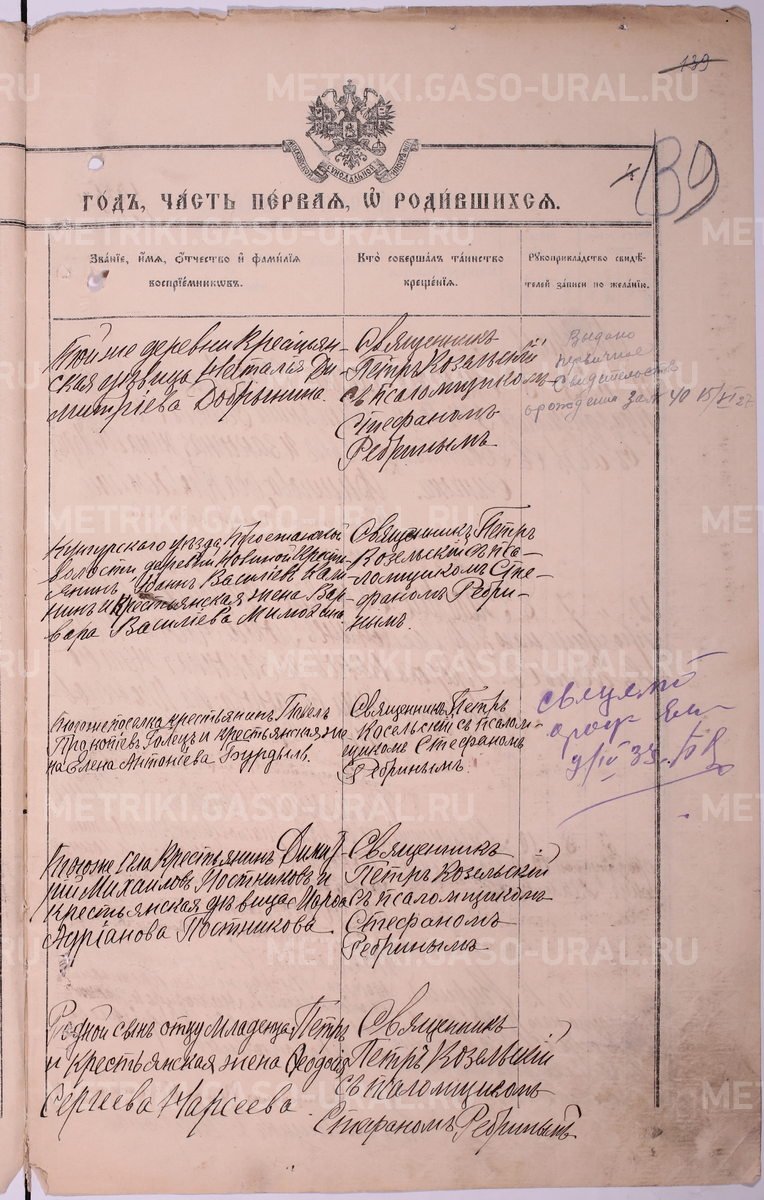 139
METRIKI.GASO-URAL.RU
139
ГОДЪ, ЧАСТЬ ПЕРВАЯ, Ѡ РОДИВШИХСЯ.
Званіе, имя, отчество и фамилія
воспріемниковъ.
Кто совершалъ таинство
крещенія.
Рукоприкладство свидѣ-
телей записи по желанію.
Той же деревни Крестьян-
ская дѣвица Наталія Ди-
митріева Добрынина.
Священникъ
Петръ Козельскій
съ псаломщикомъ
Стефаномъ
Ребринымъ
Выдано
первичное
Свидетельство
о рождении за № 40 15/VI 27
Кунгурскаго уѣзда
волости деревни Крестья-
янинъ Іоаннъ Василіевъ
и Крестьянская жена Вар-
вара Василіева
Священникъ Петръ
Козельскій съ пса-
ломщикомъ Сте-
фаномъ Ребри-
нымъ.
Тогоже поселка крестьянинъ Павелъ
Прокопіевъ Голецъ и крестьянская же-
на Елена Антоніева Бурдыль.
Священникъ Петръ
Косельскій съ псалом-
щикомъ Стефаномъ
Ребринымъ.
Тогоже села Крестьянинъ Димит-
рій Михайловъ Постниковъ и
крестьянская дѣвица
Адріанова Постникова
Священникъ
Петръ Козельскій
съ псаломщикомъ
Стефаномъ
Ребринымъ
Родной сынъ отцу младенца Петръ
и крестьянская жена Ѳеодосія
Сергіева Нарсеева.
Священникъ
Петръ Козельскій
съ псаломщикомъ
Стефаномъ Ребринымъ